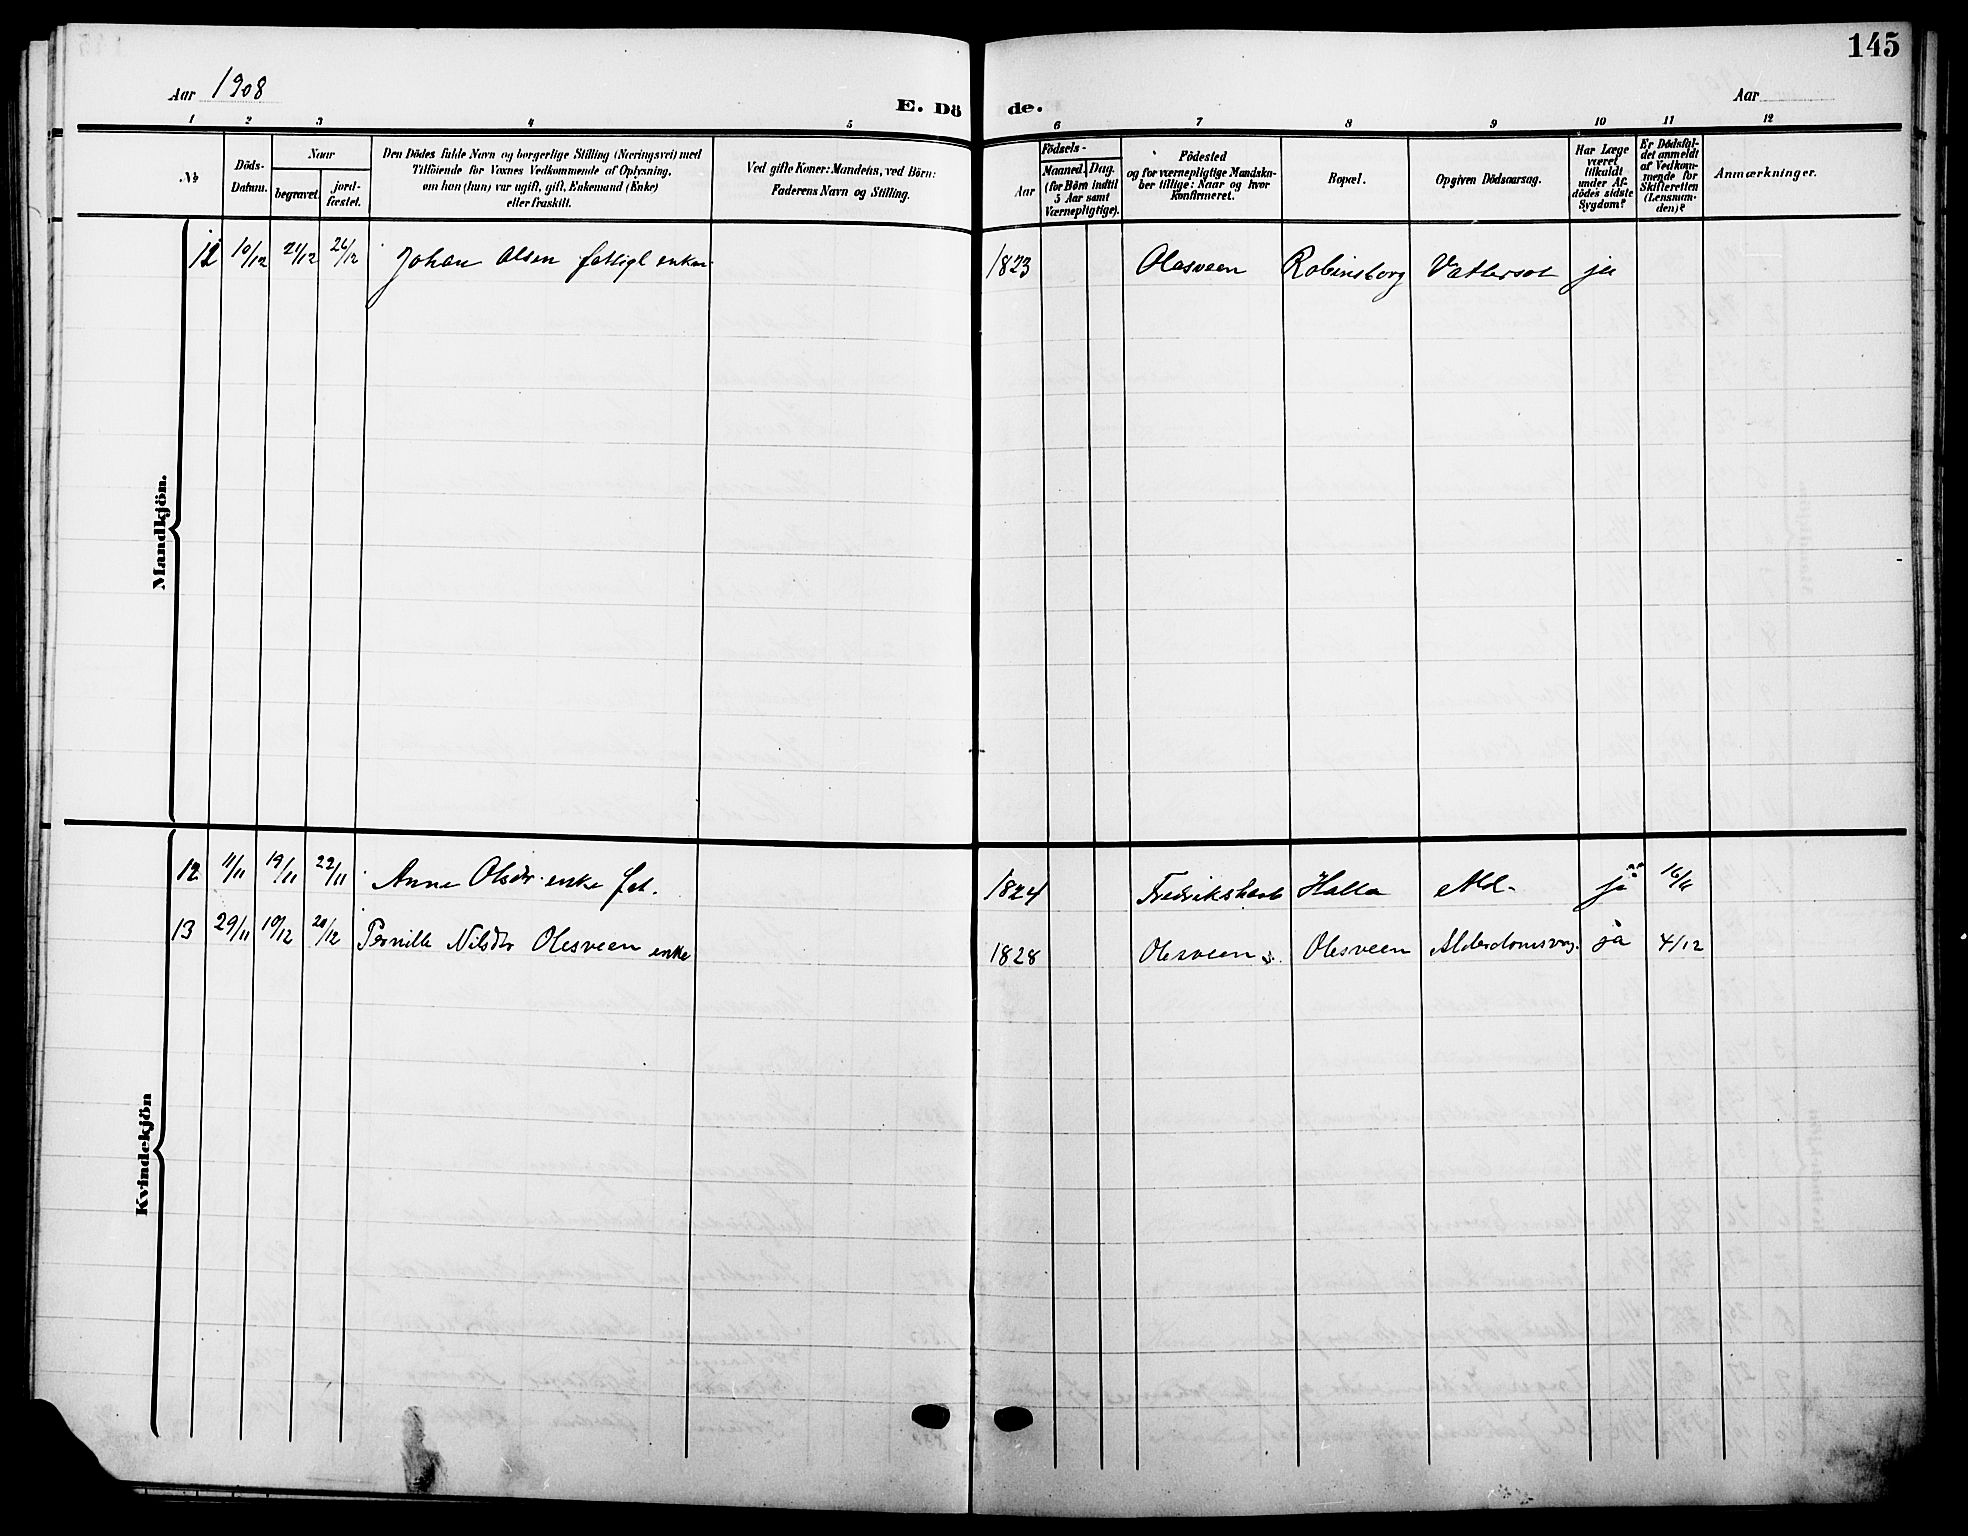 145
Aar 1908
E. Dö de.
Aar
1 2 3 4 5 6 7 8 9 10 11 12
№
Döds-
Datum.
Naar
begravet.
jord-
fæstet.
Den Dödes fulde Navn og borgerlige Stilling (Næringsvei) med
Tilföiende for Voxnes Vedkommende af Oplysning,
om han (hun) var ugift, gift, Enkemand (Enke)
eller fraskilt.
Ved gifte Koner: Mandens, ved Börn:
Faderens Navn og Stilling.
Födsels-
Aar
Maaned. Dag.
(for Börn indtil
5 Aar samt
Værnepligtige).
Födested
og for værnepligtige Mandska-
ber tillige: Naar og hvor
Konfirmeret.
Bopæl.
Opgiven Dödsaarsag.
Har Læge
været
tilkaldt
under Af-
dödes sidste
Sygdom?
Er Dödsfal-
det anmeldt
af Vedkom-
mende for
Skifteretten
(Lensman-
den)?
Anmærkninger.
Mandkjön.
12 10/12 21/12 26/12 Johan Olsen fattigl enkm. 1823 Olesveen Robinsborg Vattersot ja
Kvindekjön
12 11/11 19/11 22/11 Anne Olsdr. enke fat. 1824 Fredrikshald Halla Ald. ja 16/11
13 29/11 10/12 20/12 Pernille Nilsdr Olesveen enke 1828 Olesveen Olesveen Alderdomssvag. ja 4/12